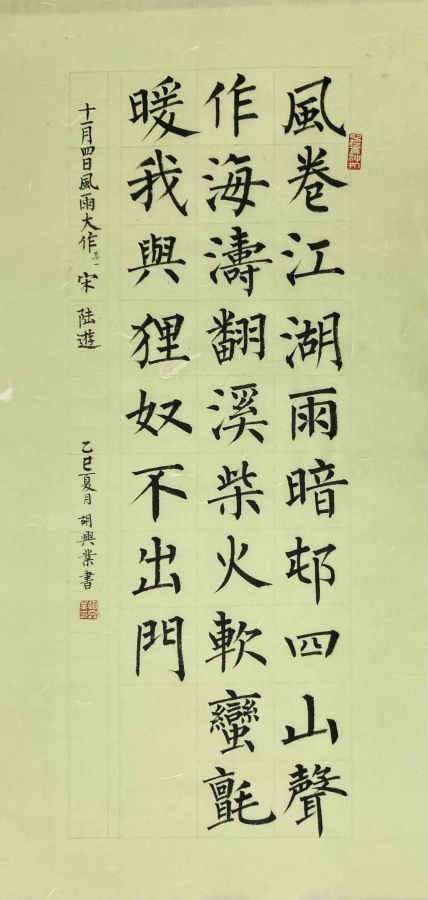 風卷江湖雨暗邨四山聲
作海濤翻溪柴火軟蠻氈
暖我與狸奴不出門
十一月四日風雨大作其一 宋 陆遊
乙巳夏月 胡興業書